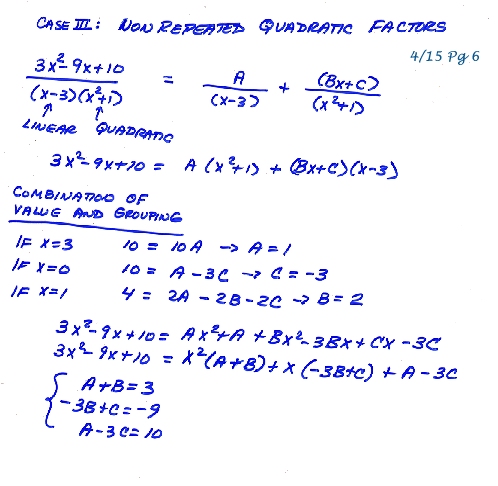 CASE III: NON REPEATED QUADRATIC FACTORS
4/15 Pg 6
3x²-9x+10 / (x-3)(x²+1) = A / (x-3) + (Bx+C) / (x²+1)
LINEAR QUADRATIC
3x²-9x+10 = A(x²+1) + (Bx+C)(x-3)
COMBINATION OF
VALUE AND GROUPING
IF x=3 10 = 10A → A=1
IF x=0 10 = A-3C → C=-3
IF x=1 4 = 2A-2B-2C → B=2
3x²-9x+10 = Ax²+A+Bx²-3Bx+Cx-3C
3x²-9x+10 = x²(A+B)+x(-3B+C)+A-3C
A+B=3
-3B+C=-9
A-3C=10